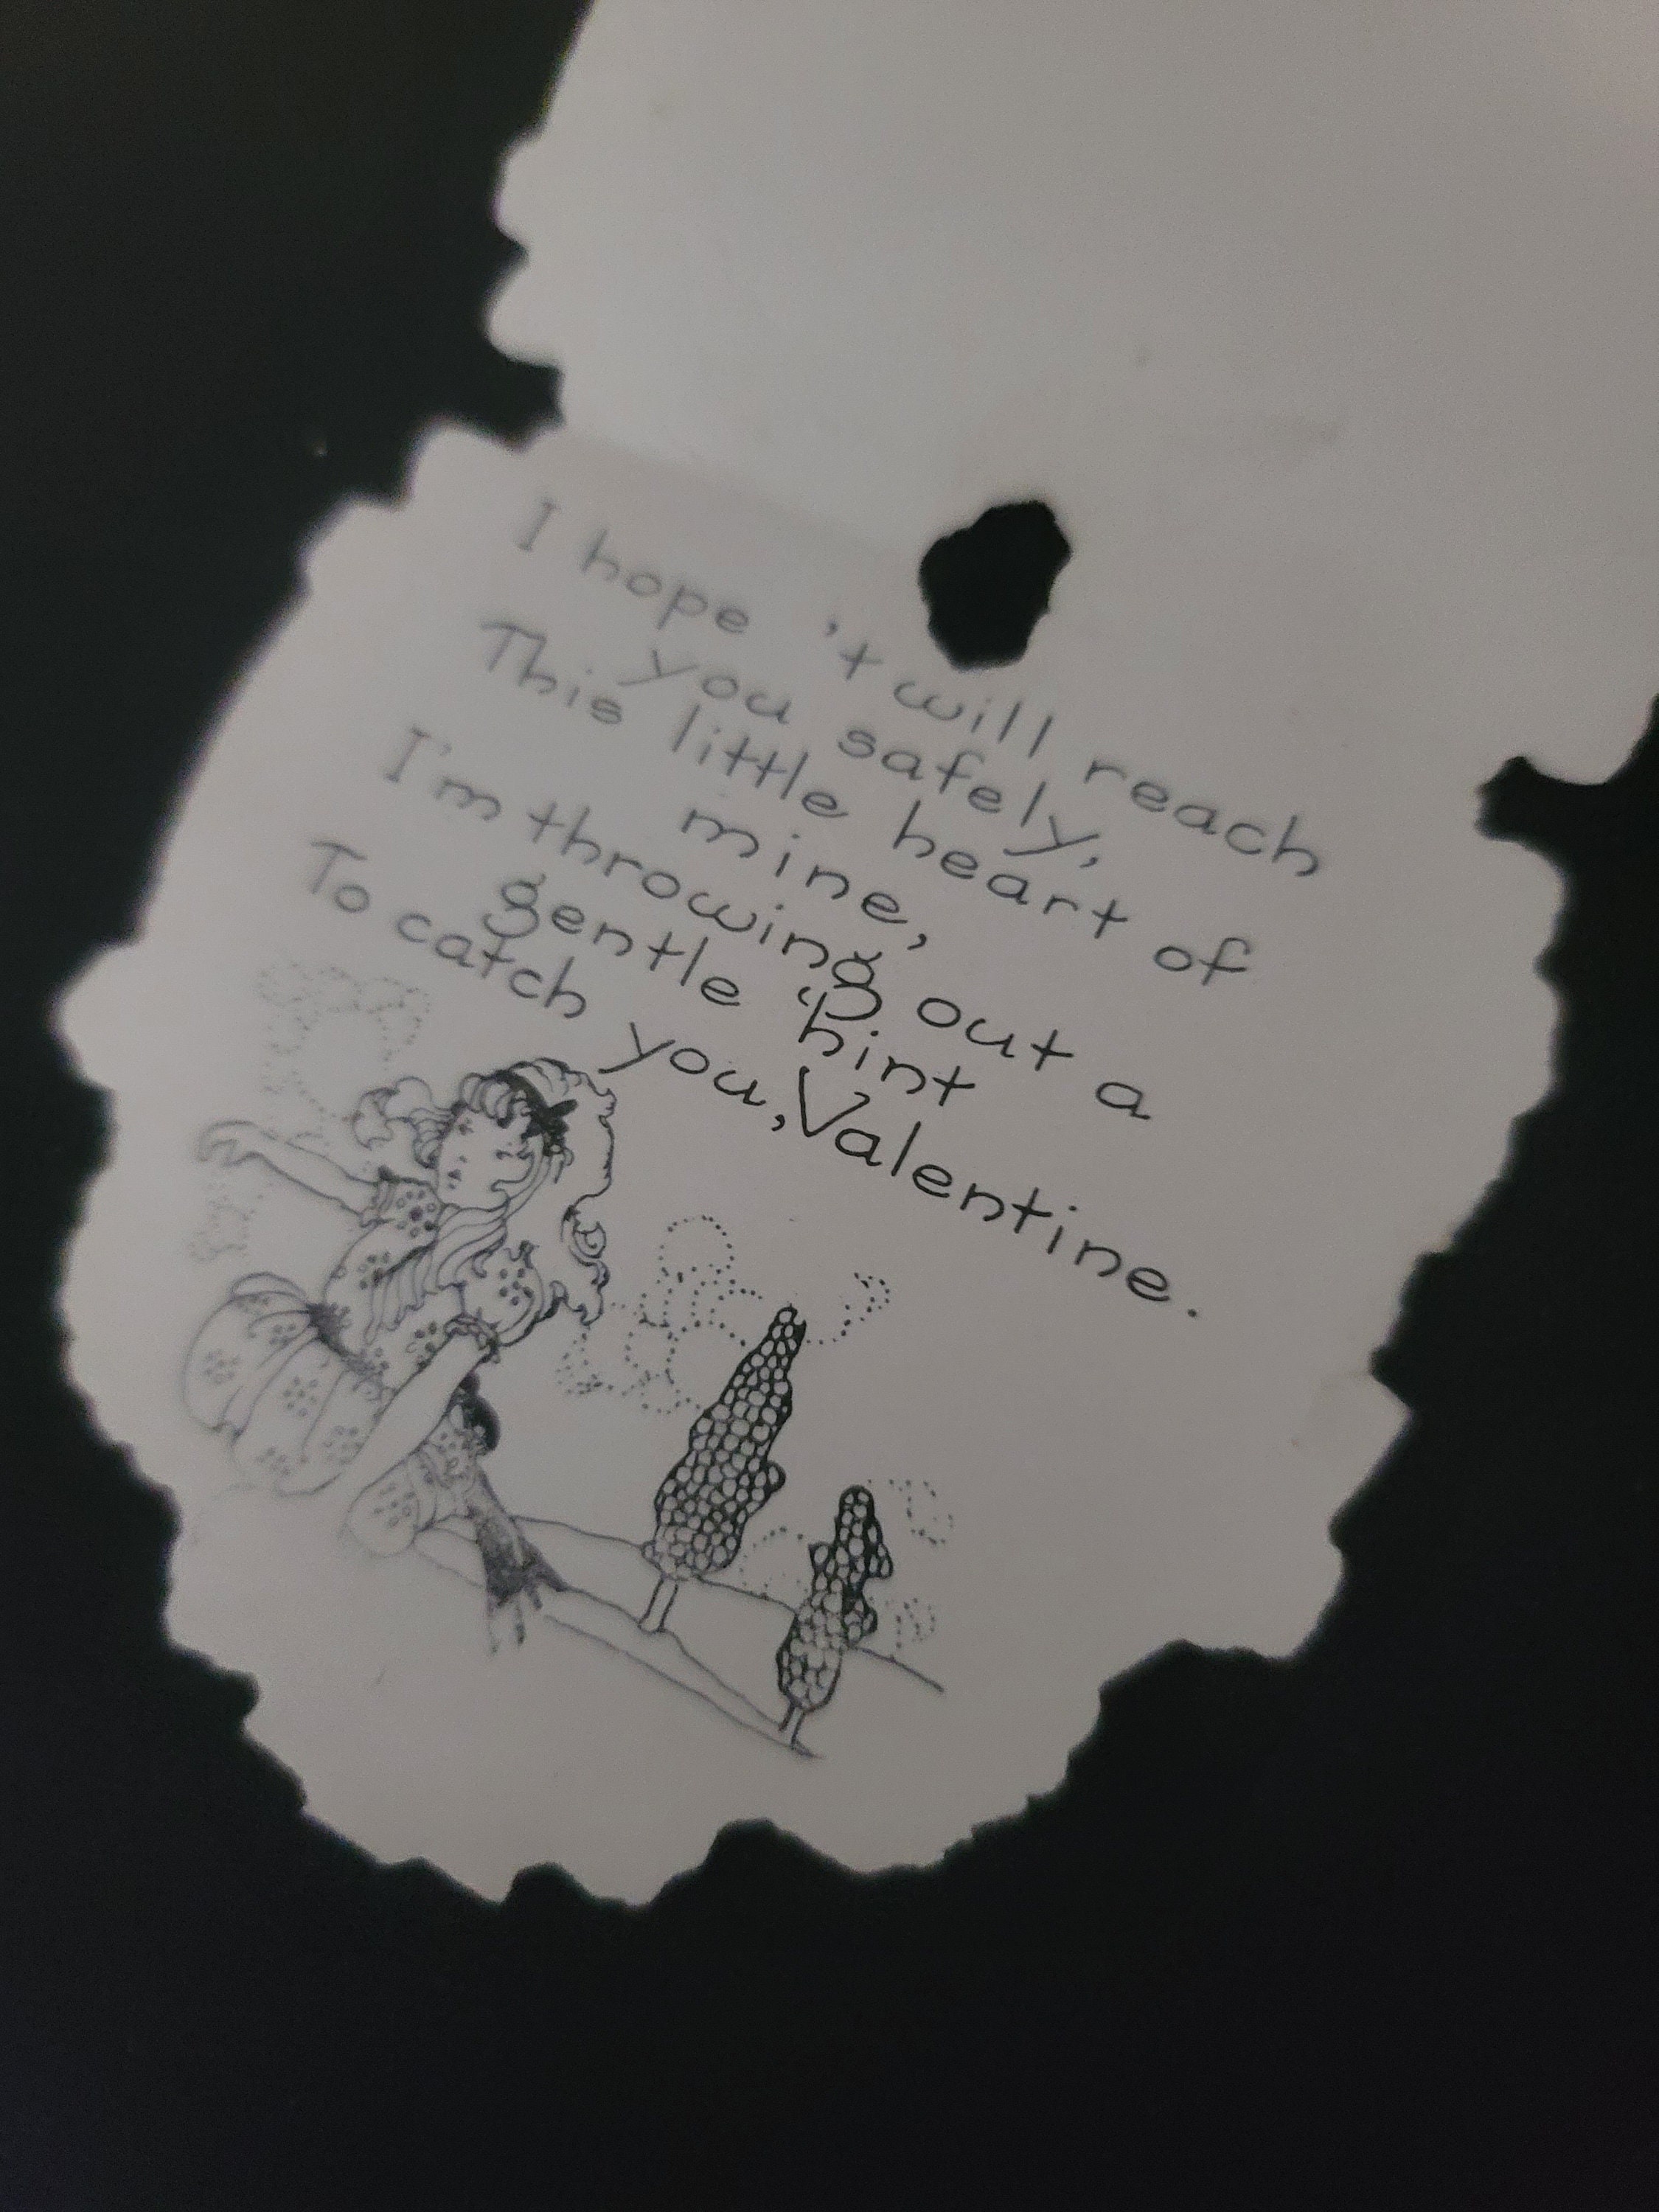 I hope 't will reach
you safely,
This little heart of
mine,
I'm throwing out a
gentle hint
To catch you, Valentine.